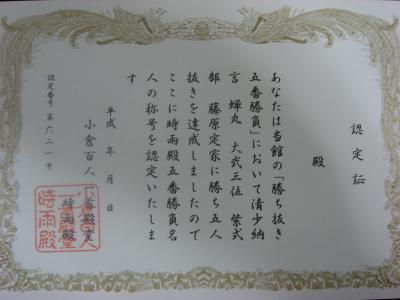 認定証
殿
あなたは当館の「勝ち抜き
五番勝負」において清少納
言 蝉丸 大弐三位 紫式
部 藤原定家に勝ち五人
抜きを達成しましたので
ここに時雨殿五番勝負名
人の称号を認定いたしま
す
平成 年 月 日
小倉百人一首殿堂
時雨殿
認定番号 第六二一号